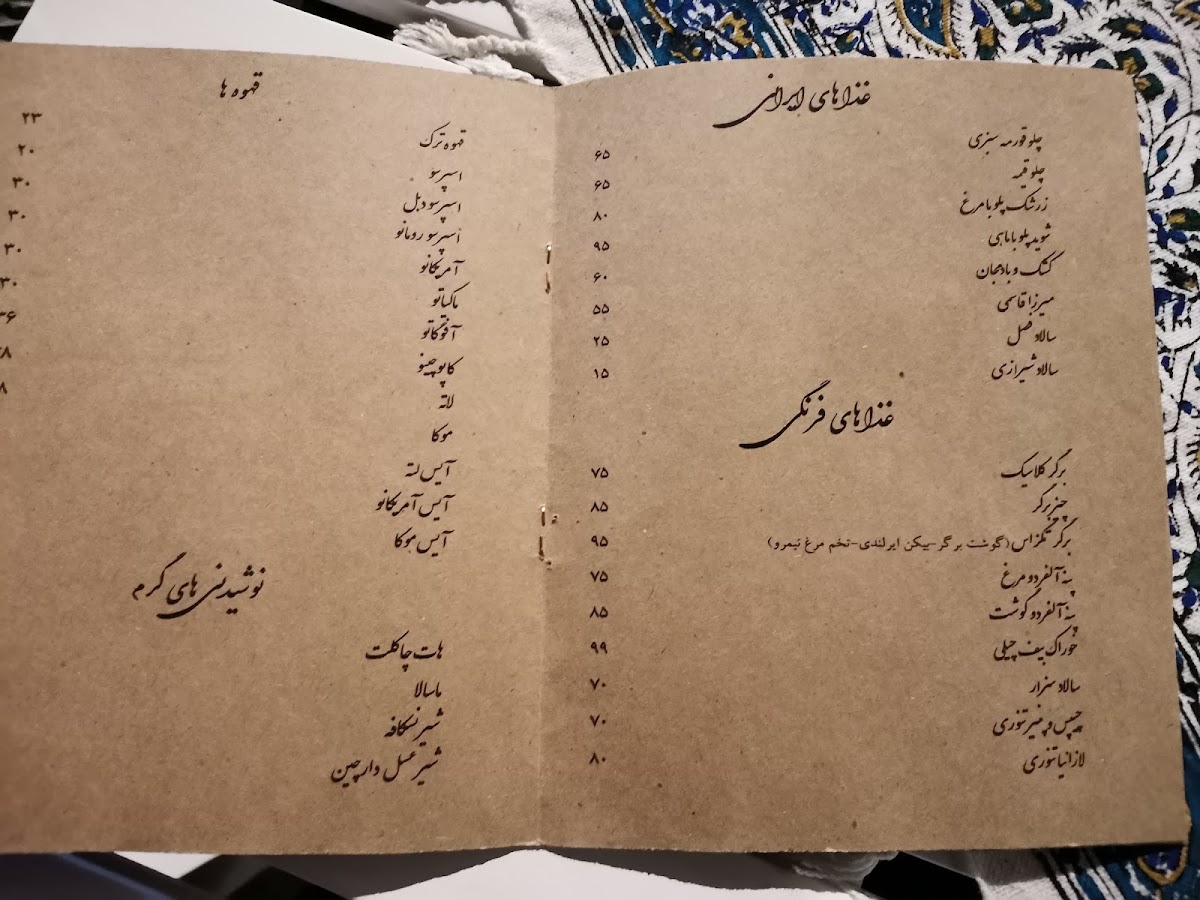 غذاهای ایرانی
چلو قورمه سبزی ۶۵
چلو قیمه ۶۵
زرشک پلو با مرغ ۸۰
شوید پلو با ماهی ۹۵
کشک و بادمجان ۶۰
میرزا قاسمی ۵۵
سالاد فصل ۲۵
سالاد شیرازی ۱۵
غذاهای فرنگی
برگر کلاسیک ۷۵
چیزبرگر ۸۵
برگر تگزاس (گوشت برگر-بیکن ایرلندی-تخم مرغ نیمرو) ۹۵
پنه آلفردو مرغ ۷۵
پنه آلفردو گوشت ۸۵
خوراک بیف چیلی ۹۹
سالاد سزار ۷۰
چیپس و پنیر تنوری ۷۰
لازانیا تنوری ۸۰
قهوه ها
قهوه ترک ۲۳
اسپرسو ۲۰
اسپرسو دبل ۳۰
اسپرسو رومانو ۳۰
آمریکانو ۳۰
ماکیاتو ۳۰
آفوگاتو ۳۶
کاپوچینو
لاته
موکا
آیس لته
آیس آمریکانو
آیس موکا
نوشیدنی های گرم
هات چاکلت
ماسالا
شیر نسکافه
شیر عسل دارچین